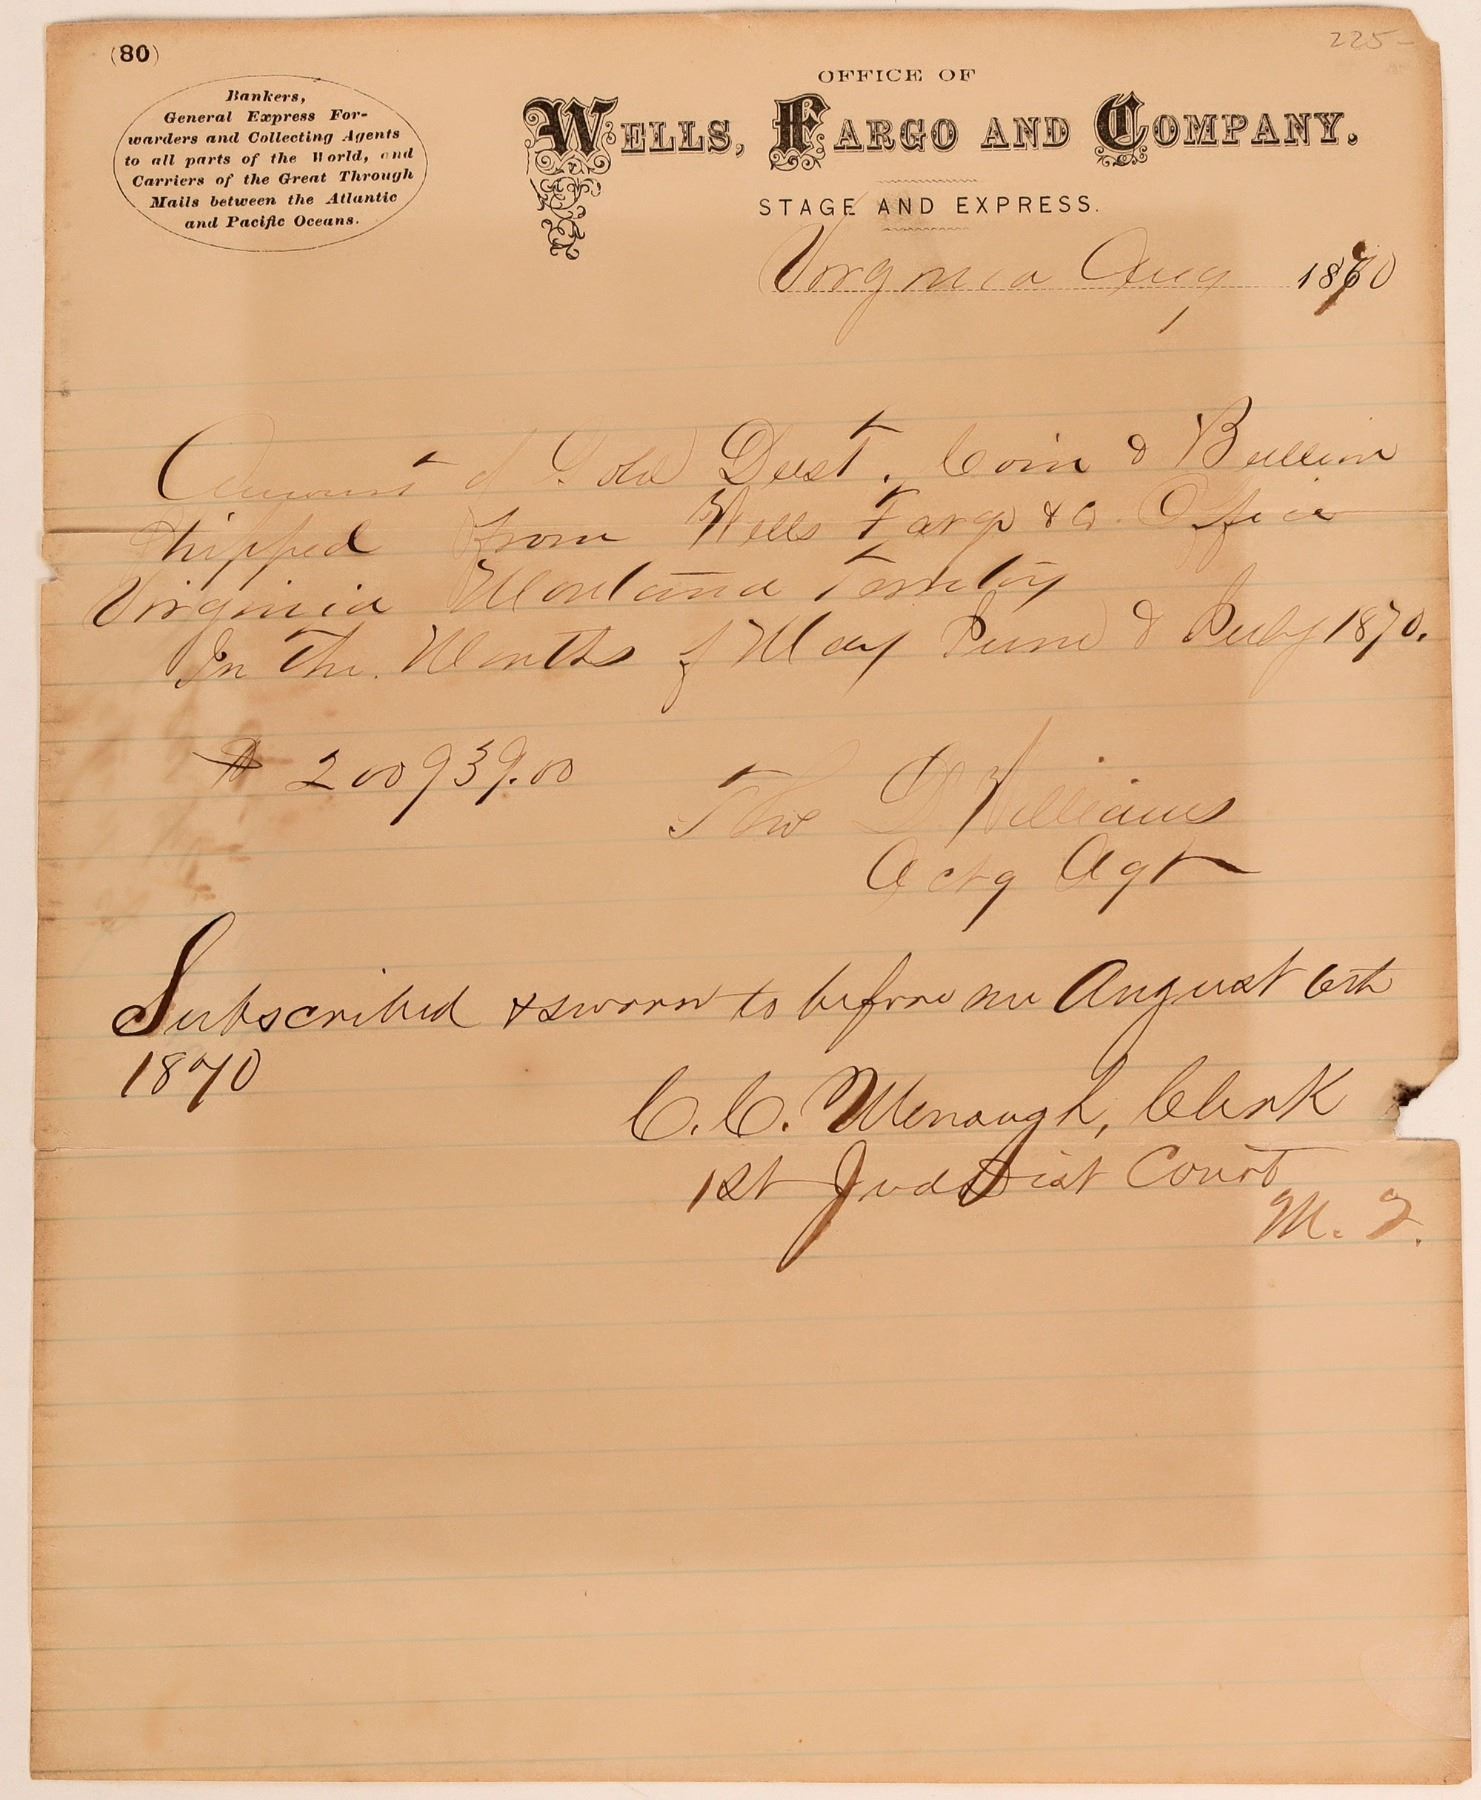 (80)
225-
Bankers,
General Express For-
warders and Collecting Agents
to all parts of the World, and
Carriers of the Great Through
Mails between the Atlantic
and Pacific Oceans.
OFFICE OF
WELLS, FARGO AND COMPANY.
STAGE AND EXPRESS.
Virginia Aug 1 1870
Amount of Gold Dust, Coin & Bullion
Shipped from Wells Fargo & Co. Office
Virginia Montana Territory
In the Months of May June & July 1870.
$ 200939.00
Thos D. Williams
Actg Agt
Subscribed & sworn to before me August 6th
1870
C. C. Menaugh, Clerk
1st Jud Dist Court
M. T.